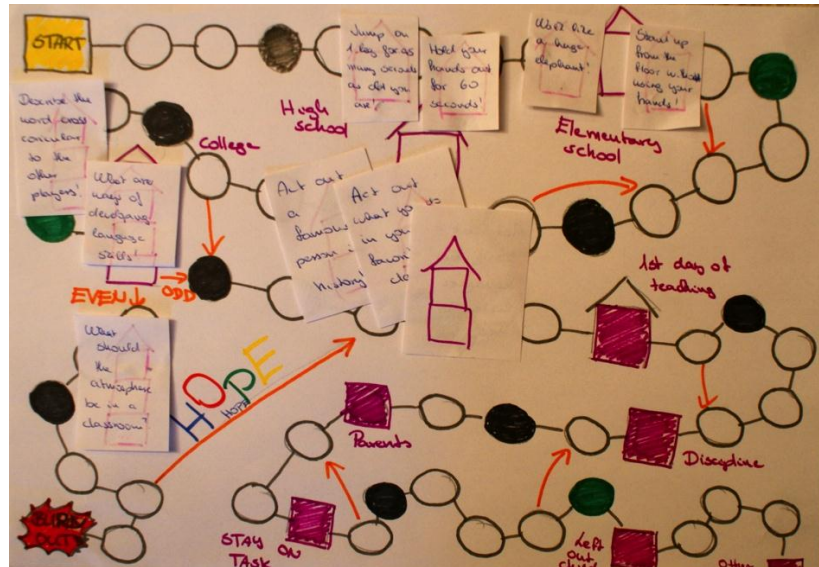 START
Jump on
1 leg for as
many seconds
as old you
are!
Hold your
hands out
for 60
seconds!
Walk like
a huge
elephant!
Stand up
from the
floor without
using your
hands!
High
school
Elementary
school
Describe the
word cross
curricular
to the
other
players!
College
What are
ways of
developing
language
skills!
Act out
a
famous
person in
history!
Act out
what you
in your
1st day of
teaching
EVEN
ODD
What
should
the
atmosphere
be in a
classroom?
HOPE
HOPE
Parents
Discipline
BURN
OUT
STAY
ON
TASK
Left
out
child
Other